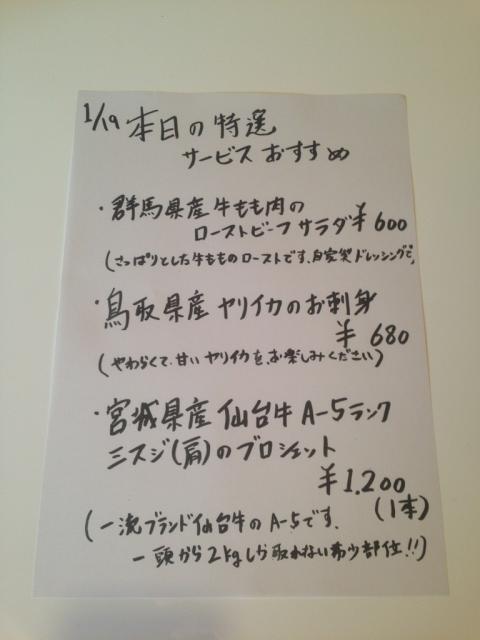 1/19 本日の特選
サービスおすすめ
・群馬県産牛もも肉の
ローストビーフサラダ ¥600
(さっぱりとした牛もものローストです、自家製ドレッシングで)
・鳥取県産ヤリイカのお刺身
¥680
(やわらくて、甘いヤリイカを、お楽しみください)
・宮城県産仙台牛A-5ランク
ミスジ(肩)のブロシェット
¥1,200
(1本)
(一流ブランド仙台牛のA-5です、
一頭から2kgしか取れない希少部位!!)